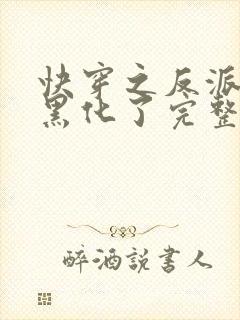 快穿之反派
黑化了完整
醉酒說書人